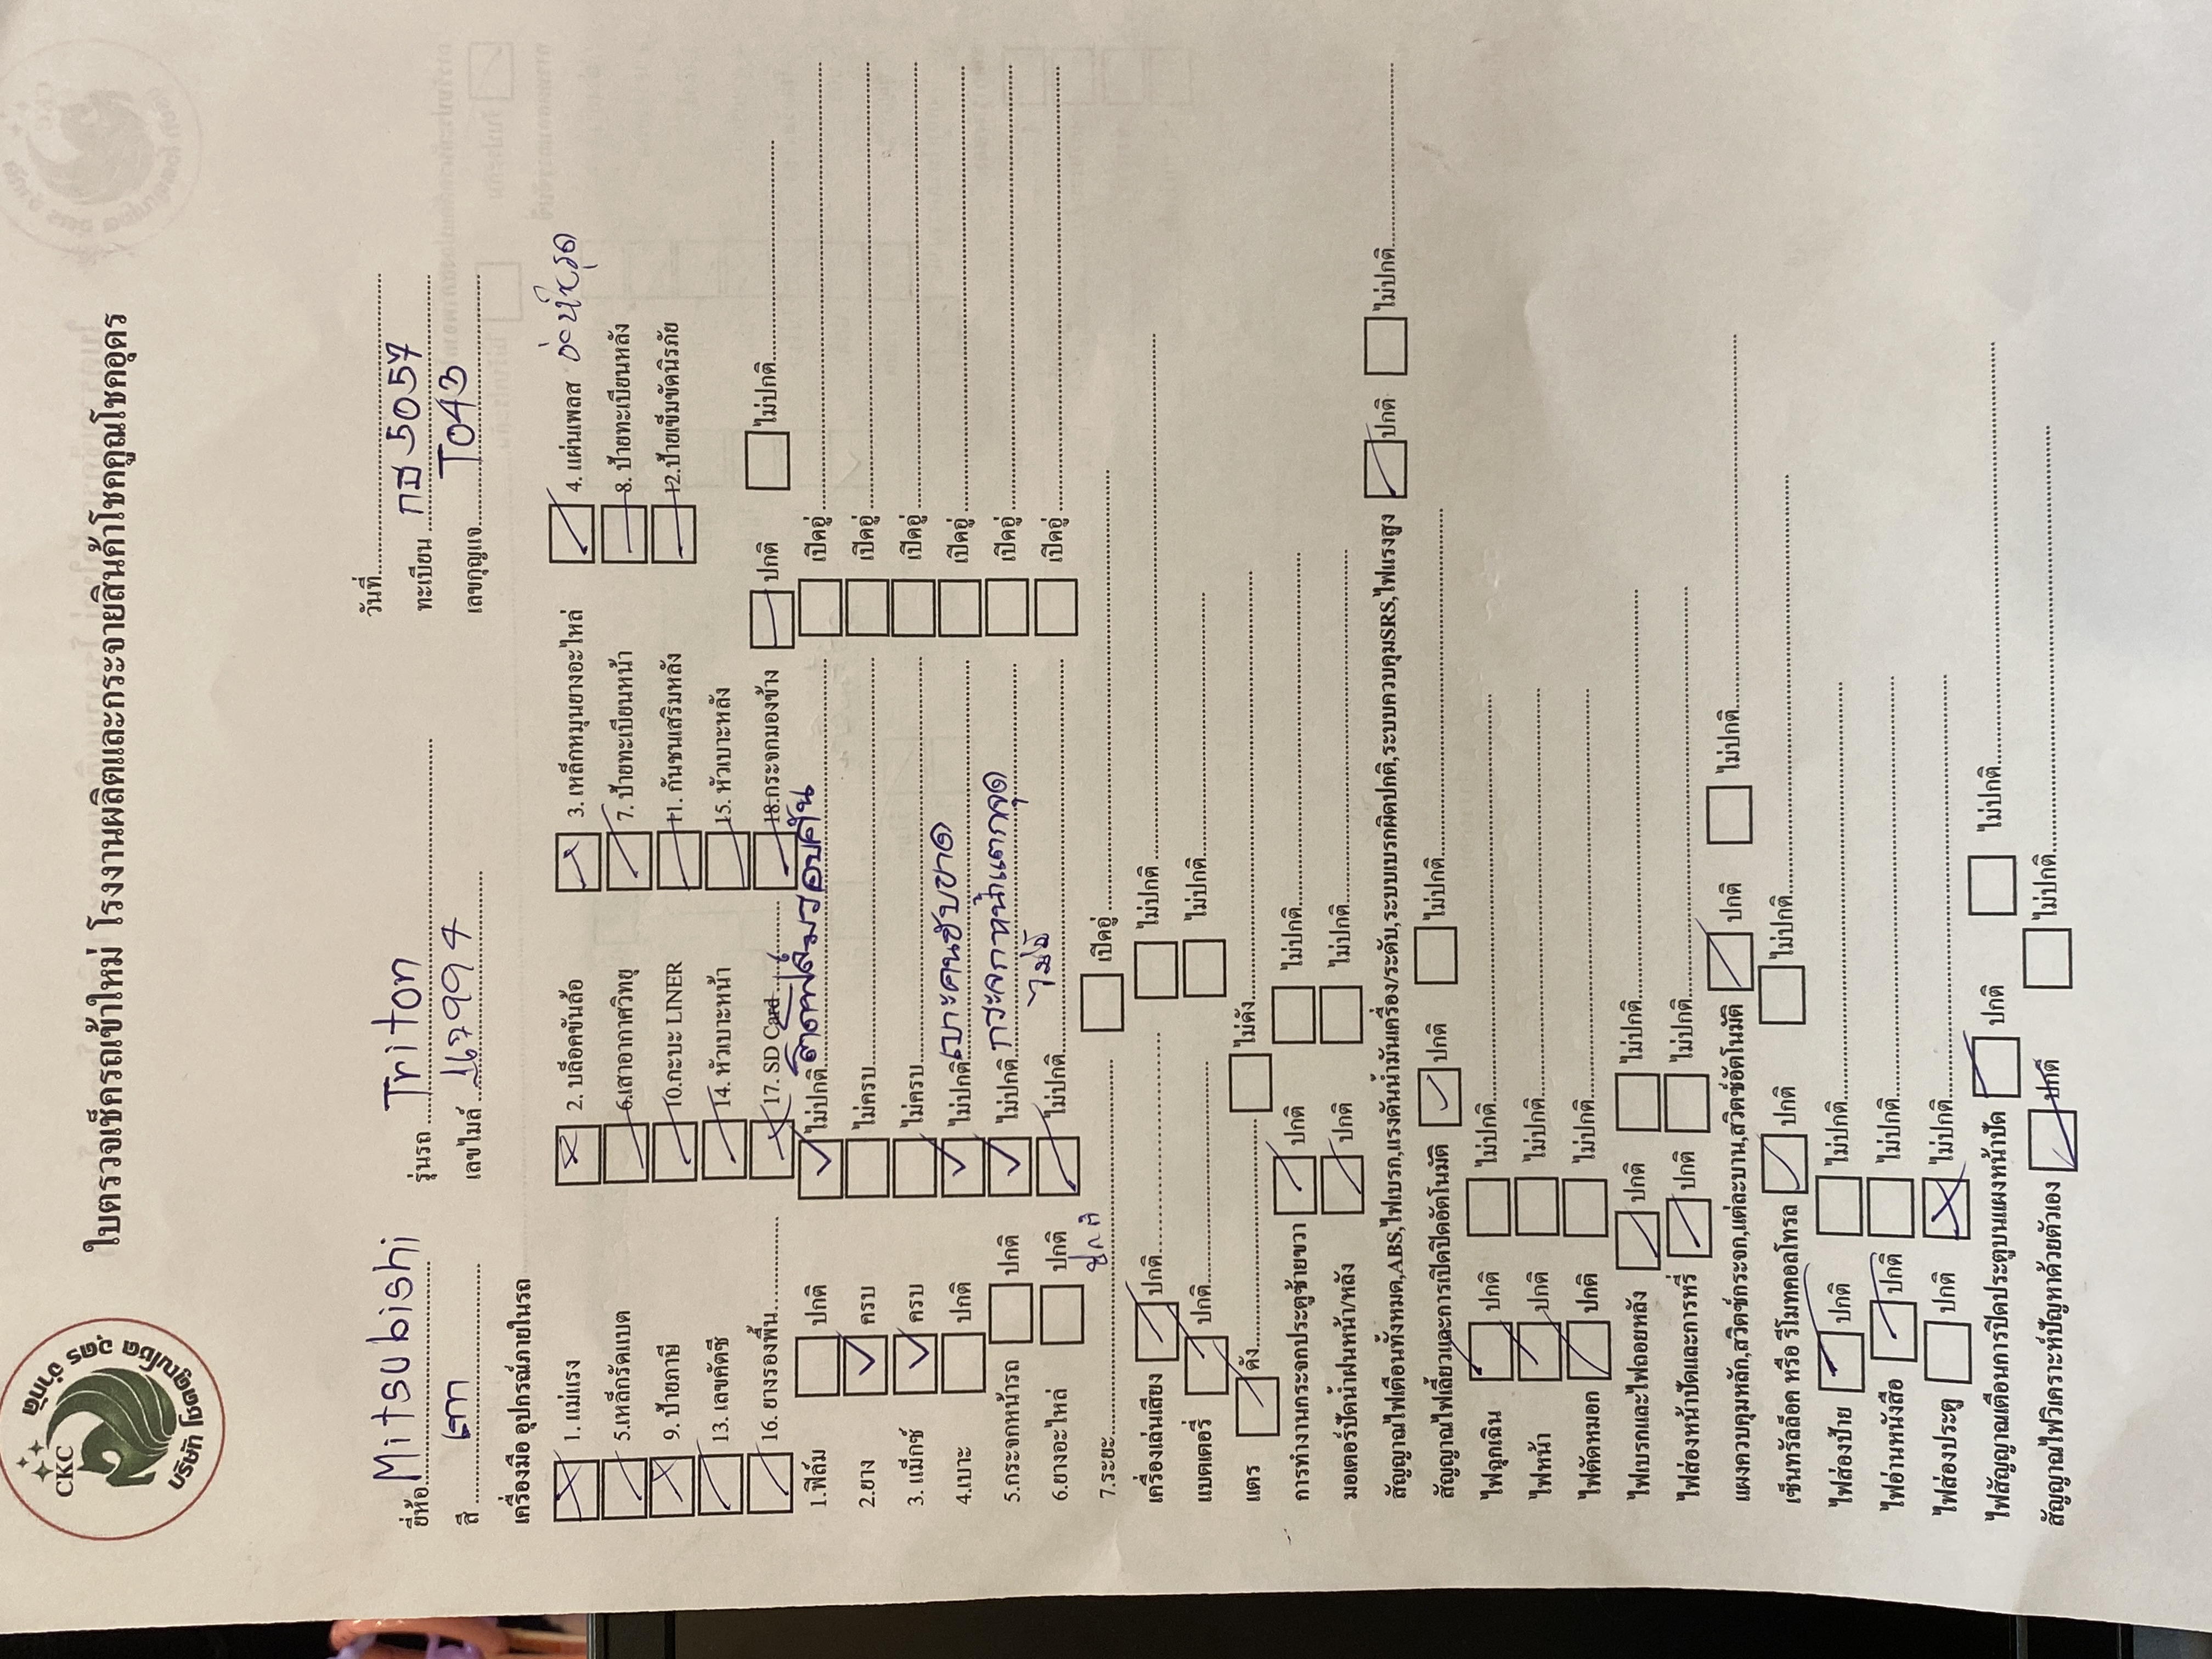 CKC
บริษัท โชคคูณโชค อุดร จำกัด
ใบตรวจเช็ครถเข้าใหม่ โรงงานผลิตและกระจายสินค้าโชคคูณโชคอุดร
วันที่
ยี่ห้อ Mitsubishi รุ่นรถ Triton ทะเบียน 5057
สี เทา เลขไมล์ เลขกุญแจ T043
เครื่องมือ อุปกรณ์ภายในรถ
1. แม่แรง 2. บล็อคขันล้อ 3. เหล็กหมุนยางอะไหล่ 4. แผ่นเพลส
5.เหล็กรัดแบต 6.เสาอากาศวิทยุ 7. ป้ายทะเบียนหน้า 8. ป้ายทะเบียนหลัง
9. ป้ายภาษี 10.กะบะ LINER 11. กันชนเสริมหลัง 12.ป้ายเข็มขัดนิรภัย
13. เลขคัตซี 14. หัวเบาะหน้า 15. หัวเบาะหลัง
16. ยางรองพื้น 17. SD Card ไม่มี 18.กระจกมองข้าง ปกติ ไม่ปกติ
1.ฟิล์ม ปกติ ไม่ปกติ ติดฟิล์มรอบคัน เปิดอู่
2.ยาง ครบ ไม่ครบ เปิดอู่
3. แม็กซ์ ครบ ไม่ครบ เปิดอู่
4.เบาะ ปกติ ไม่ปกติ เบาะคนขับขาด เปิดอู่
5.กระจกหน้ารถ ปกติ ไม่ปกติ กระจกหน้าแตกจุด เปิดอู่
6.ยางอะไหล่ ปกติ ไม่ปกติ ไม่มี เปิดอู่
7.ระยะ ปกติ เปิดอู่
เครื่องเล่นเสียง ปกติ ไม่ปกติ
แบตเตอรี่ ปกติ ไม่ปกติ
แตร ดัง ไม่ดัง
การทำงานกระจกประตูซ้ายขวา ปกติ ไม่ปกติ
มอเตอร์ปัดน้ำฝนหน้า/หลัง ปกติ ไม่ปกติ
สัญญาณไฟเตือนทั้งหมด,ABS,ไฟเบรก,แรงดันน้ำมันเครื่อง/ระดับ,ระบบเบรกผิดปกติ,ระบบควบคุมSRS,ไฟแรงสูง ปกติ ไม่ปกติ
สัญญาณไฟเลี้ยวและการเปิดปิดอัตโนมัติ ปกติ ไม่ปกติ
ไฟฉุกเฉิน ปกติ ไม่ปกติ
ไฟหน้า ปกติ ไม่ปกติ
ไฟตัดหมอก ปกติ ไม่ปกติ
ไฟเบรกและไฟถอยหลัง ปกติ ไม่ปกติ
ไฟส่องหน้าปัดและการหรี่ ปกติ ไม่ปกติ
แผงควบคุมหลัก,สวิตช์กระจก,แต่ละบาน,สวิตช์อัตโนมัติ ปกติ ไม่ปกติ
เซ็นทรัลล็อค หรือ รีโมทคอลโทรล ปกติ ไม่ปกติ
ไฟส่องป้าย ปกติ ไม่ปกติ
ไฟอ่านหนังสือ ปกติ ไม่ปกติ
ไฟส่องประตู ปกติ ไม่ปกติ
ไฟสัญญาณเตือนการปิดประตูบนแผงหน้าปัด ปกติ ไม่ปกติ
สัญญาณไฟวิเคราะห์ปัญหาด้วยตัวเอง ปกติ ไม่ปกติ